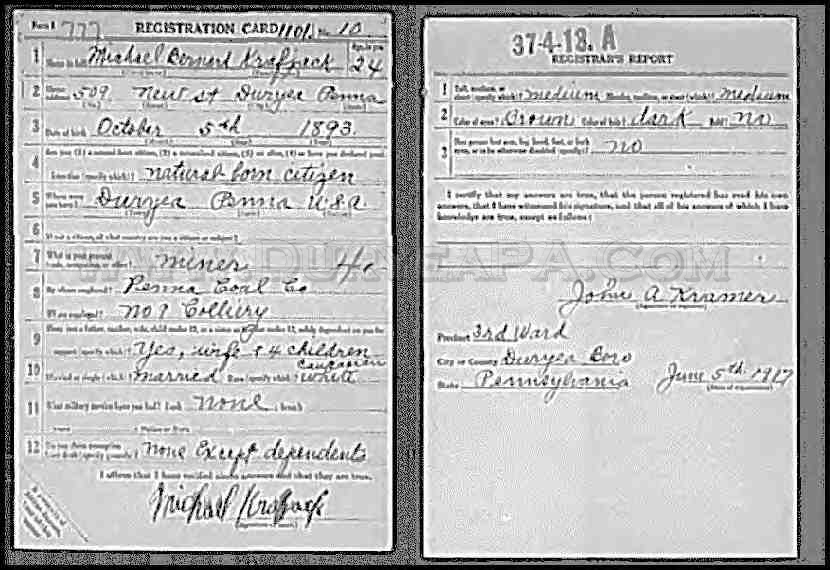 Form 1 777 REGISTRATION CARD 1101 No. 10
1 Name in full Michael Bernard Krafjack Age, in yrs. 24
2 Home address 509 New St Duryea Penna
3 Date of birth October 5th 1893
4 Are you (1) a natural-born citizen, (2) a naturalized citizen, (3) an alien, (4) or have you declared your
intention (specify which)? natural born citizen
5 Where were you born? Duryea Penna U.S.A.
6 If not a citizen, of what country are you a citizen or subject?
7 What is your present trade, occupation, or office? miner
8 By whom employed? Penna Coal Co
Where employed? No 9 Colliery
9 Have you a father, mother, wife, child under 12, or a sister or brother under 12, solely dependent on you for
support (specify which)? Yes, wife & 4 children
caucasian
10 Married or single (which)? married Race (specify which)? white
11 What military service have you had? Rank none ; branch
12 Do you claim exemption from draft (specify grounds)? none Except dependents
I affirm that I have verified above answers and that they are true.
Michael Krafjack
37-4-18. A
REGISTRAR'S REPORT
1 Tall, medium, or short (specify which)? medium Slender, medium, or stout (which)? medium
2 Color of eyes? Brown Color of hair? dark Bald? no
3 Has person lost arm, leg, hand, foot, or both eyes, or is he otherwise disabled (specify)? no
I certify that my answers are true, that the person registered has read his own
answers, that I have witnessed his signature, and that all of his answers of which I have
knowledge are true, except as follows:
WWW.DURYEAPA.COM
John A Kramer
(Signature of registrar)
Precinct 3rd Ward
City or County Duryea Boro
State Pennsylvania June 5th 1917
(Date of registration)